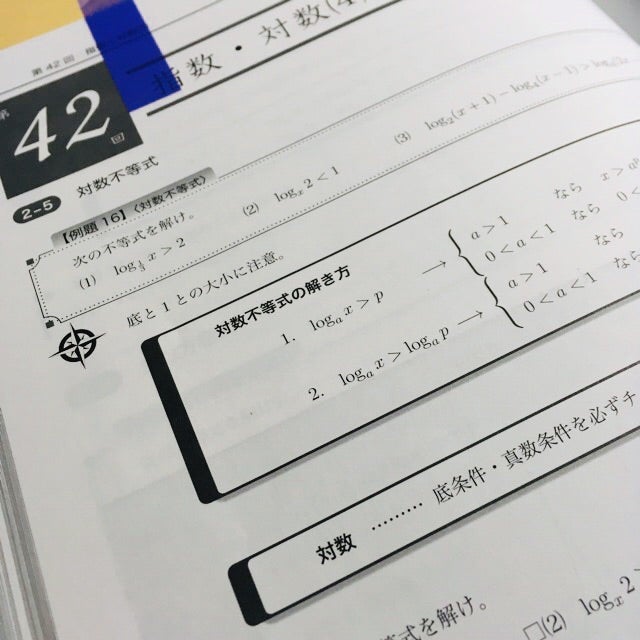 第42回 指
指数・対数(4)
第
42
回
2-5 対数不等式
【例題16】〈対数不等式〉
次の不等式を解け。
(1) log x > 2 (2) logₓ 2 < 1 (3) log₂(x+1) − log₄(x−1) > log
底と1との大小に注意。
対数不等式の解き方
1. logₐ x > p → { a > 1 なら x > a
0 < a < 1 なら 0 <
2. logₐ x > logₐ p → { a > 1 なら
0 < a < 1 なら
対数 ……… 底条件・真数条件を必ずチ
等式を解け。
□(2) logₓ 2 >